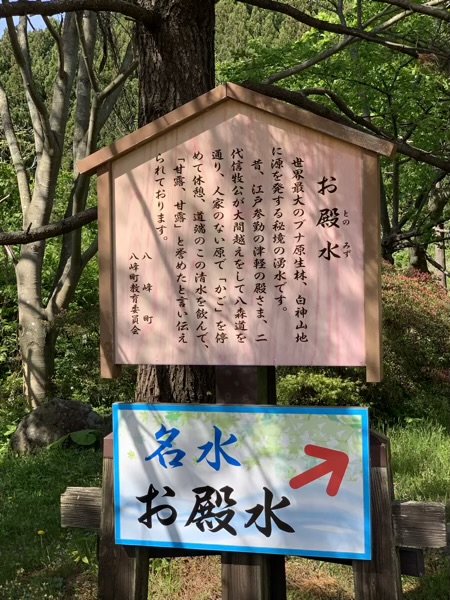 お殿水
との みず
世界最大のブナ原生林、白神山地
に源を発する秘境の湧水です。
昔、江戸参勤の津軽の殿さま、二
代信牧公が大間越えをして八森道を
通り、人家のない原で「かご」を停
めて休憩、道端のこの清水を飲んで、
「甘露、甘露」と誉めたと言い伝え
られております。
八峰町
八峰町教育委員会
名水
お殿水